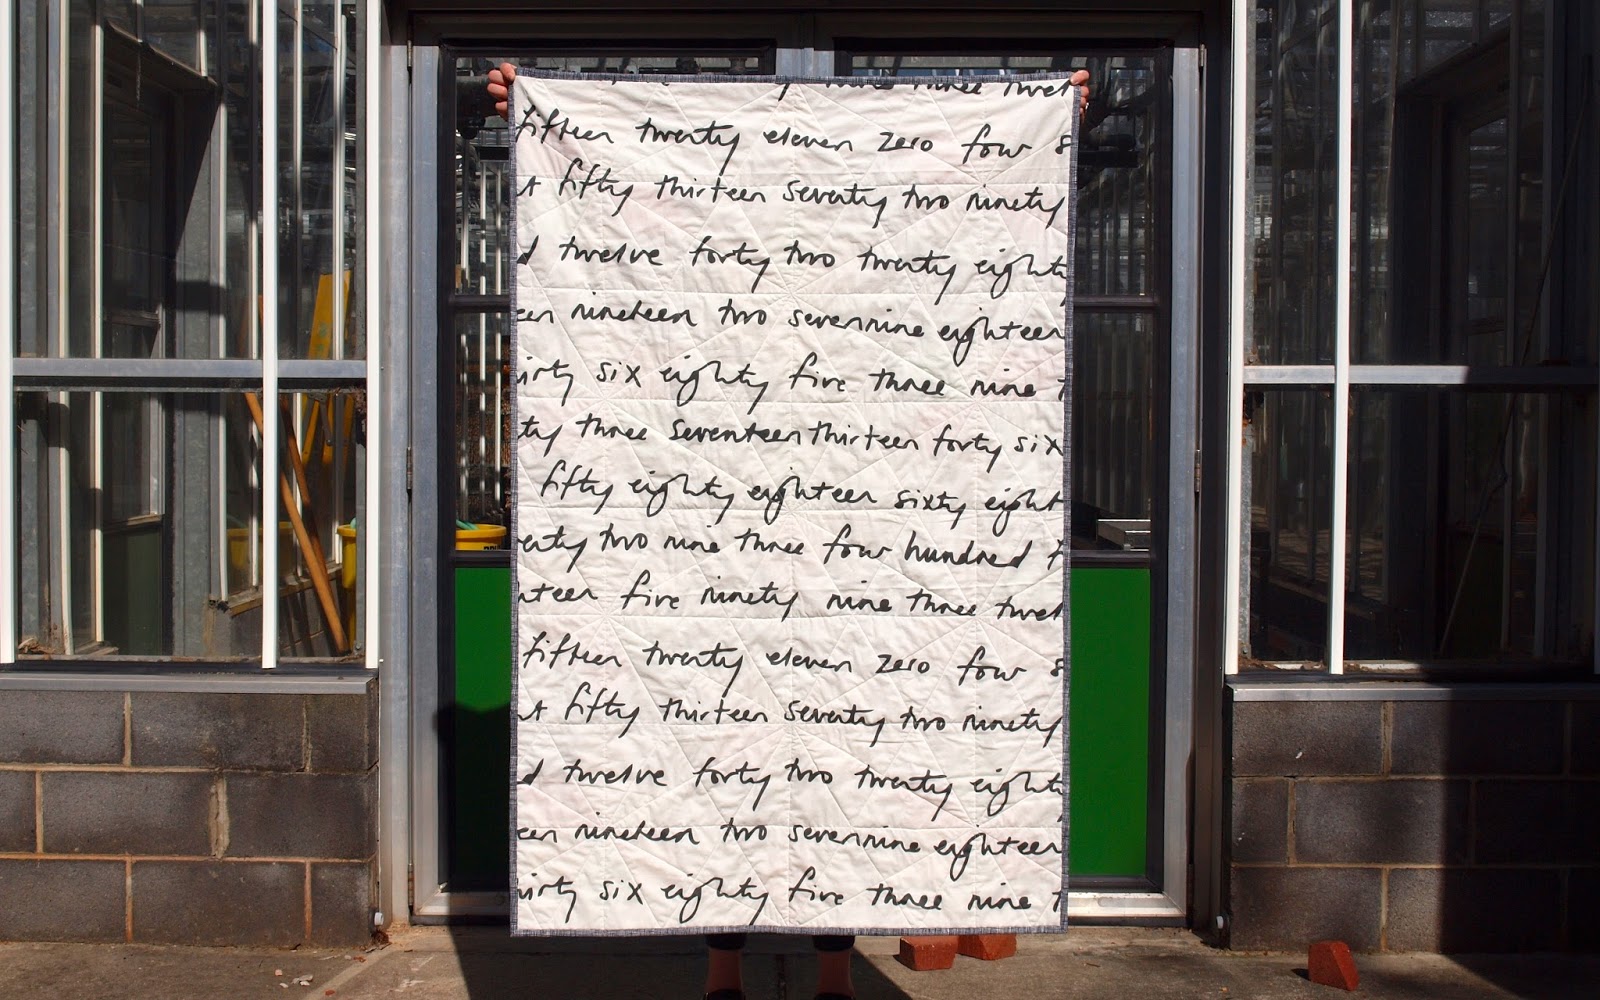 three twel
fifteen twenty eleven zero four
fifty thirteen seventy two ninety
d twelve forty two twenty eighty
een nineteen two seven nine eighteen
irty six eighty five three nine t
ty three seventeen thirteen forty six
fifty eighty eighteen sixty eight
enty two nine three four hundred
hteen five ninety nine three twel
fifteen twenty eleven zero four
fifty thirteen seventy two ninety
d twelve forty two twenty eighty
een nineteen two seven nine eighteen
irty six eighty five three nine t